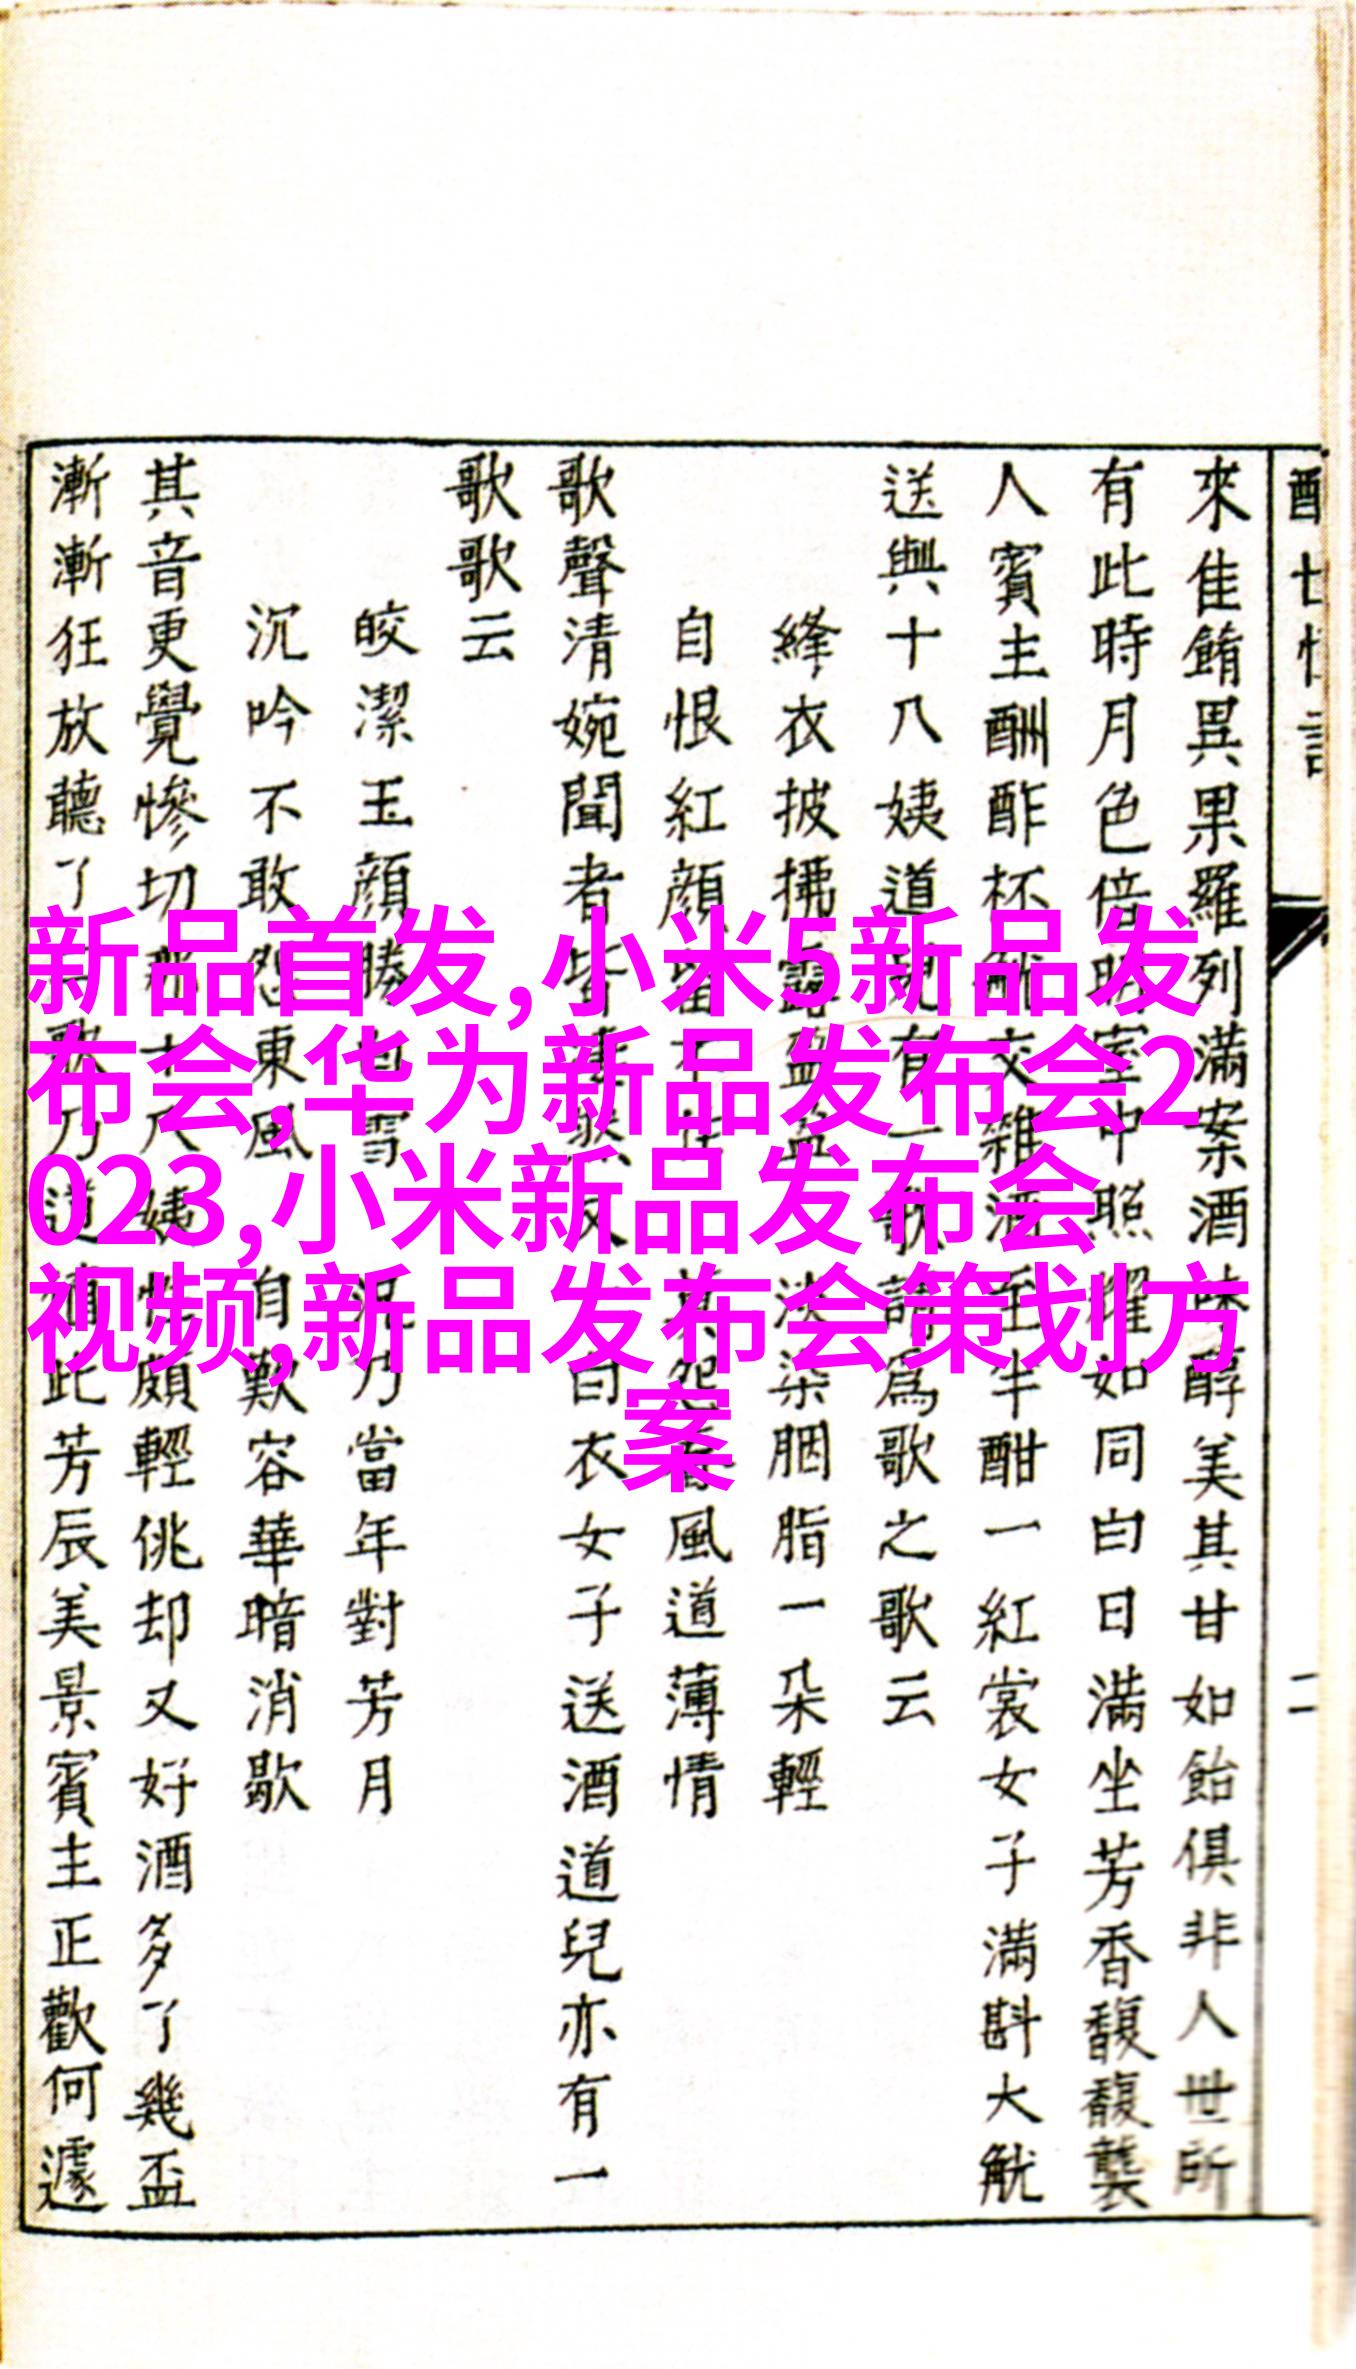 來佳餚異果羅列滿案酒味醇美其甘如飴俱非人世所
有此時月色倍明室中照耀如同白日滿坐芳香馥馥襲
人賓主酬酢杯觥交雜酒至半酣一紅裳女子滿斟大觥
送與十八姨道兒有一歌請爲歌之歌云
絳衣披拂露盈盈淡染胭脂一朵輕
自恨紅顏留不住莫怨春風道薄情
歌聲清婉聞者皆淒然又白衣女子送酒道兒亦有一
歌歌云
皎潔玉顏勝白雪況乃當年對芳月
沉吟不敢怨東風自歎容華暗消歇
其音更覺慘切那十八姨性頗輕佻却又好酒多了幾盃
漸漸狂放聽了二歌乃道值此芳辰美景賓主正歡何遽
新品首发,小米5新品发
布会,华为新品发布会2
023,小米新品发布会
视频,新品发布会策划方
案